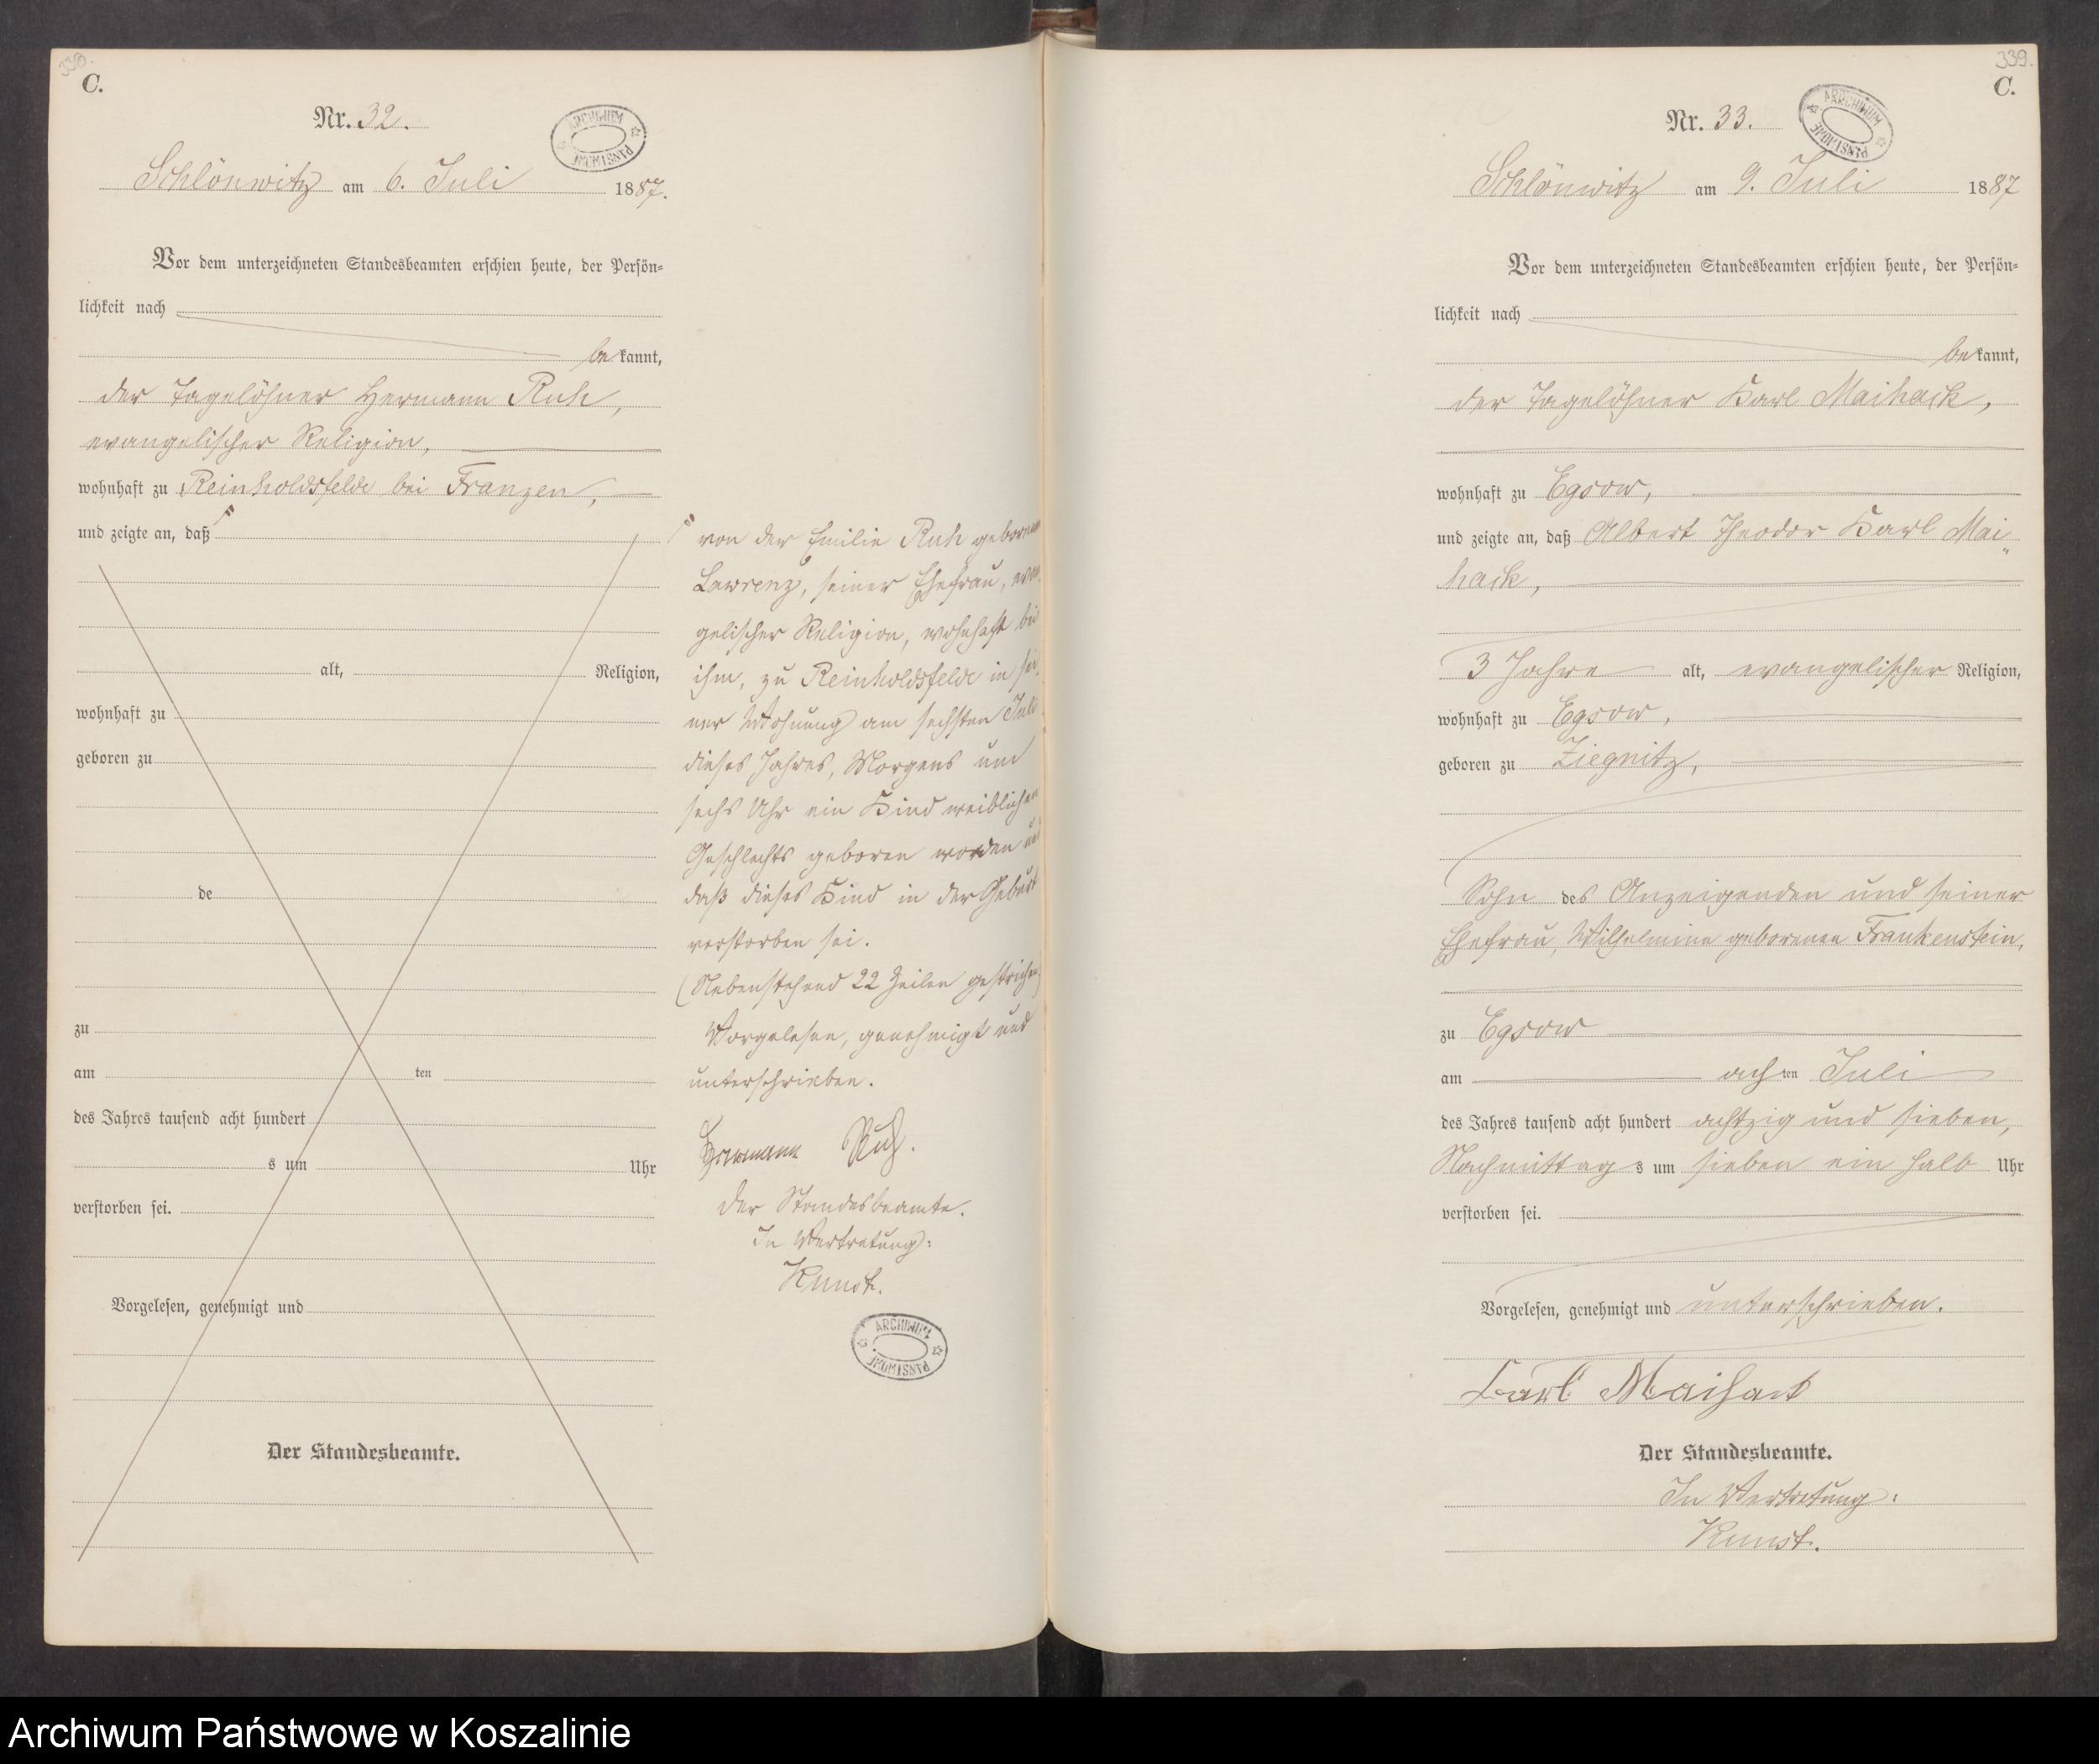 338.
C.
Nr. 32.
ARCHIWUM PAŃSTWOWE
Schlönwitz am 6. Juli 1887.
Vor dem unterzeichneten Standesbeamten erschien heute, der Persön-
lichkeit nach
be kannt,
der Tagelöhner Hermann Ruh,
evangelischer Religion,
wohnhaft zu Reinholdsfelde bei Franzen,
und zeigte an, daß
alt, Religion,
wohnhaft zu
geboren zu
de
zu
am ten
des Jahres tausend acht hundert
s um Uhr
verstorben sei.
Vorgelesen, genehmigt und
Der Standesbeamte.
von der Emilie Ruh geborenen
Lawrenz, seiner Ehefrau, evan
gelischer Religion, wohnhaft bei
ihm, zu Reinholdsfelde in sei
ner Wohnung am sechsten Juli
dieses Jahres, Morgens um
sechs Uhr ein Kind weiblichen
Geschlechts geboren worden und
daß dieses Kind in der Geburt
verstorben sei.
(Nebenstehend 22 Zeilen gestrichen)
Vorgelesen, genehmigt und
unterschrieben.
Hermann Ruh.
Der Standesbeamte.
In Vertretung:
Kunst.
ARCHIWUM PAŃSTWOWE
339.
C.
Nr. 33.
ARCHIWUM PAŃSTWOWE
Schlönwitz am 9. Juli 1887
Vor dem unterzeichneten Standesbeamten erschien heute, der Persön-
lichkeit nach
be kannt,
der Tagelöhner Karl Maihack,
wohnhaft zu Egsow,
und zeigte an, daß Albert Theodor Karl Mai
hack,
3 Jahre alt, evangelischer Religion,
wohnhaft zu Egsow,
geboren zu Ziegnitz,
Sohn des Anzeigenden und seiner
Ehefrau, Wilhelmine geborenen Frankenstein,
zu Egsow
am achten Juli
des Jahres tausend acht hundert achtzig und sieben,
Nachmittag s um sieben ein halb Uhr
verstorben sei.
Vorgelesen, genehmigt und unterschrieben.
Carl Maihack
Der Standesbeamte.
In Vertretung:
Kunst.
Archiwum Państwowe w Koszalinie